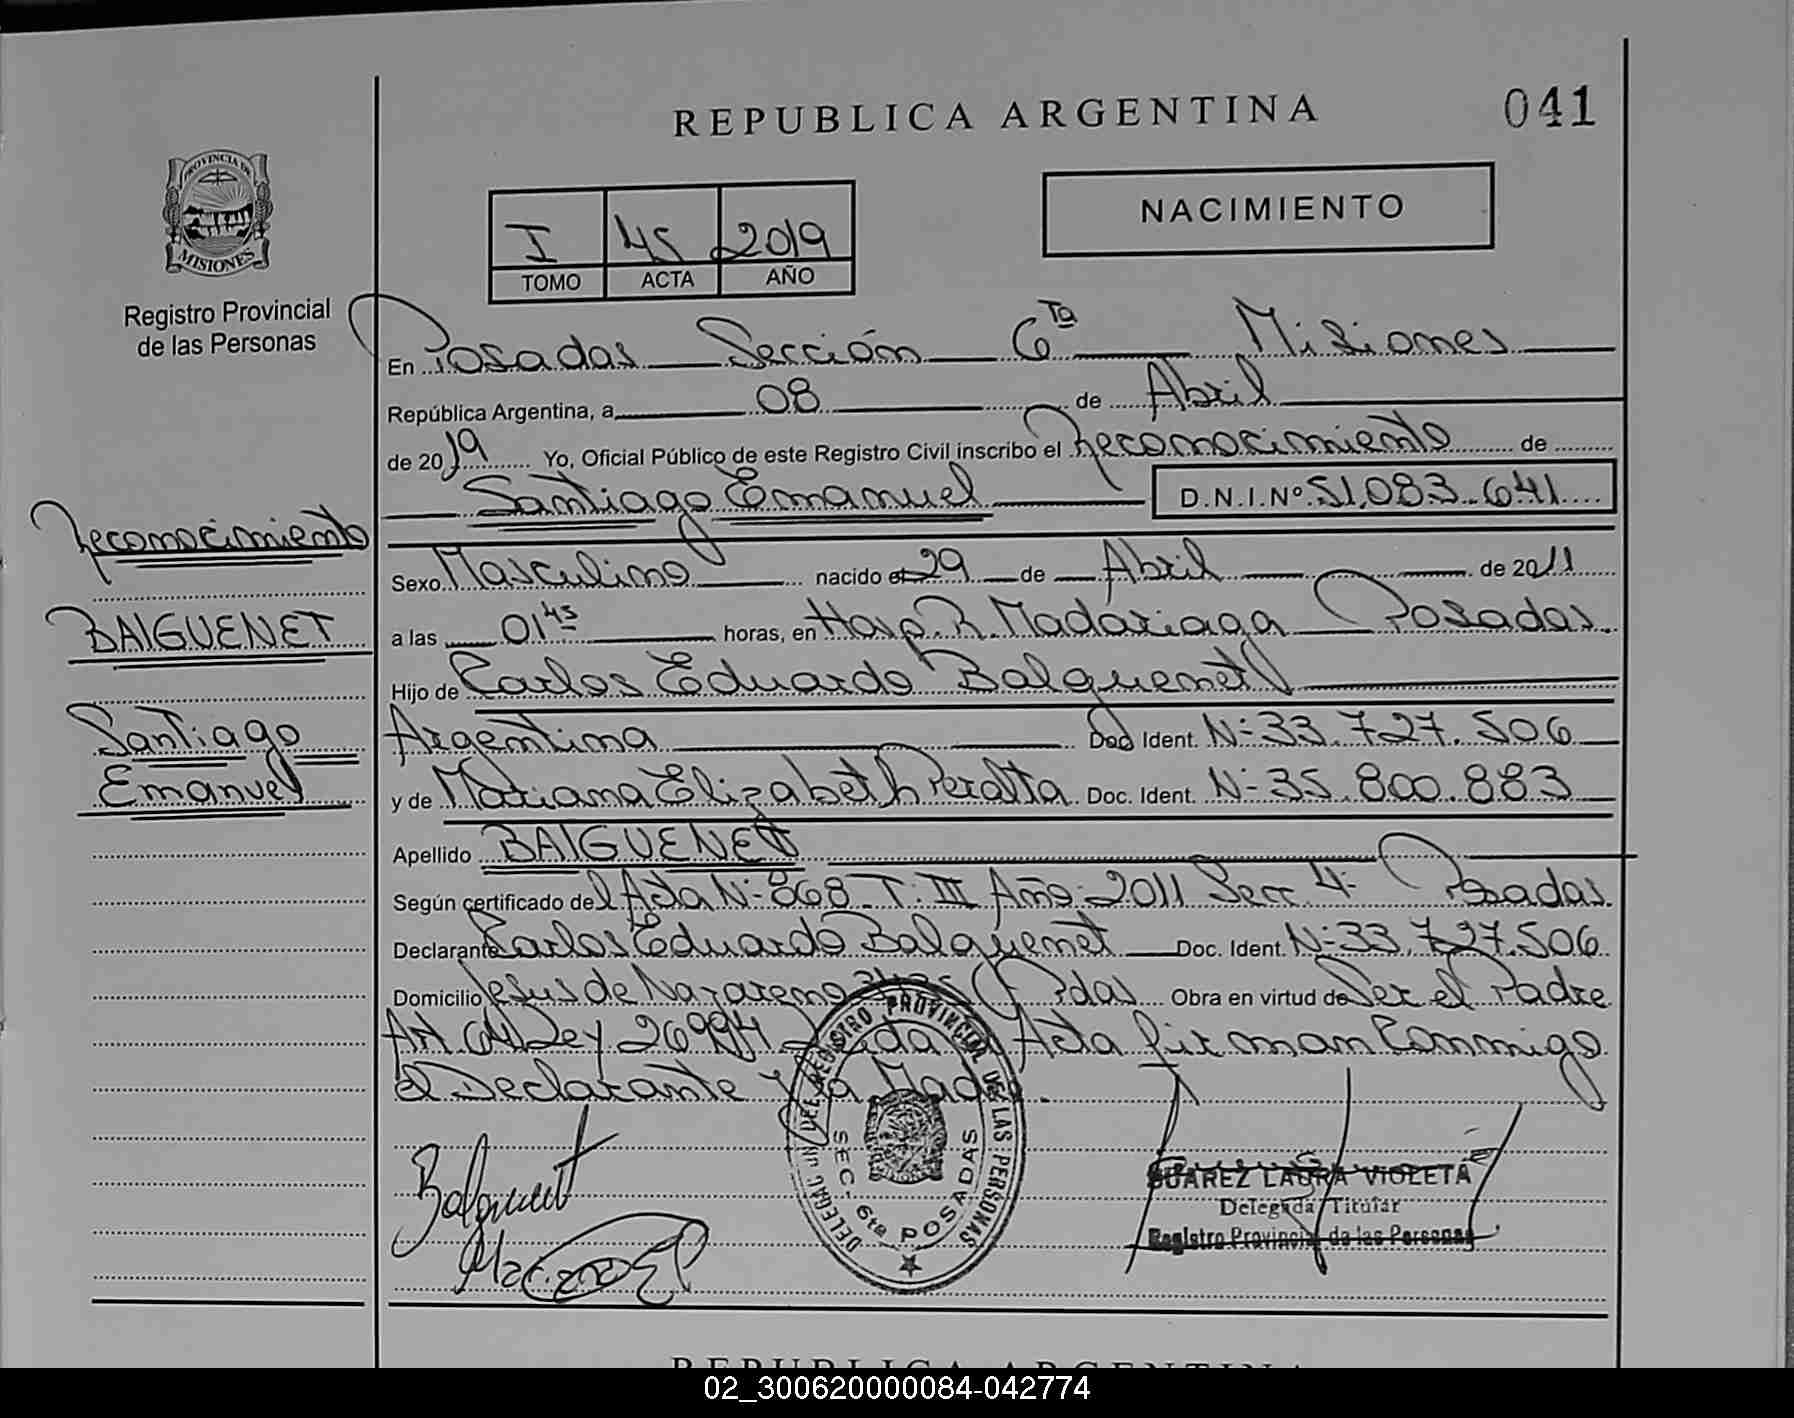 REPUBLICA ARGENTINA
041
PROVINCIA DE
MISIONES
Registro Provincial
de las Personas
I 45 2019
TOMO ACTA AÑO
NACIMIENTO
En Posadas Sección 6ta Misiones
República Argentina, a 08 de Abril
de 2019 Yo, Oficial Público de este Registro Civil inscribo el Reconocimiento de
Santiago Emanuel D.N.I.Nº 51.083.641
Reconocimiento
BAIGUENET
Santiago
Emanuel
Sexo Masculino nacido el 29 de Abril de 2011
a las 01 45 horas, en Hosp. R. Madariaga Posadas.
Hijo de Carlos Eduardo Balguenet
Argentina Doc Ident. N- 33.727.506
y de Mariana Elizabeth Peralta Doc. Ident. N- 35.800.883
Apellido BAIGUENET
Según certificado del Acta N- 868 T. III Año 2011 Secc 4- Posadas.
Declarante Carlos Eduardo Balguenet Doc. Ident. N- 33.727.506
Domicilio Jesus de Nazareno Pdas Obra en virtud de Ser el Padre
Art. Ley 26994 Acta firman Conmigo
el Declarante y la Madre.
DEL REGISTRO PROVINCIAL DE LAS PERSONAS
SEC- 6ta POSADAS
Balguenet
SUAREZ LAURA VIOLETA
Delegada Titular
Registro Provincial de las Personas
REPUBLICA ARGENTINA
02_300620000084-042774